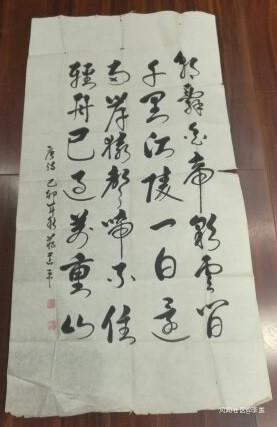 朝辭白帝彩雲間
千里江陵一日還
兩岸猿聲啼不住
輕舟已過萬重山
唐詩 己卯年秋